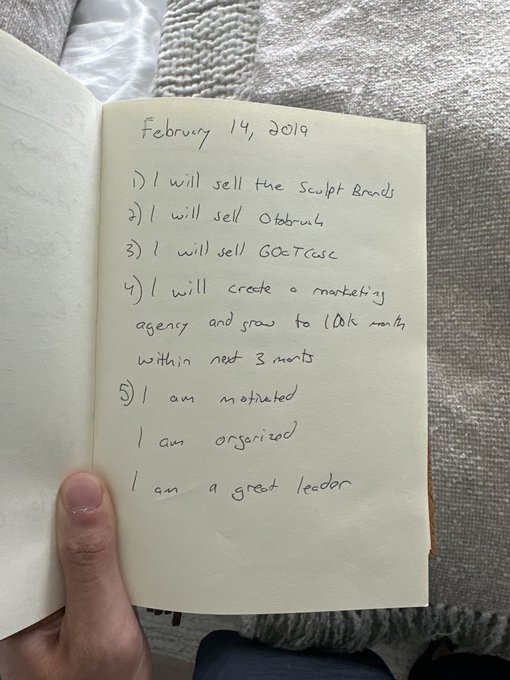 February 14, 2019
1) I will sell the Sculpt Brands
2) I will sell Otobrush
3) I will sell
4) I will create a marketing
agency and grow to 100k month
within next 3 monts
5) I am motivated
I am organized
I am a great leader